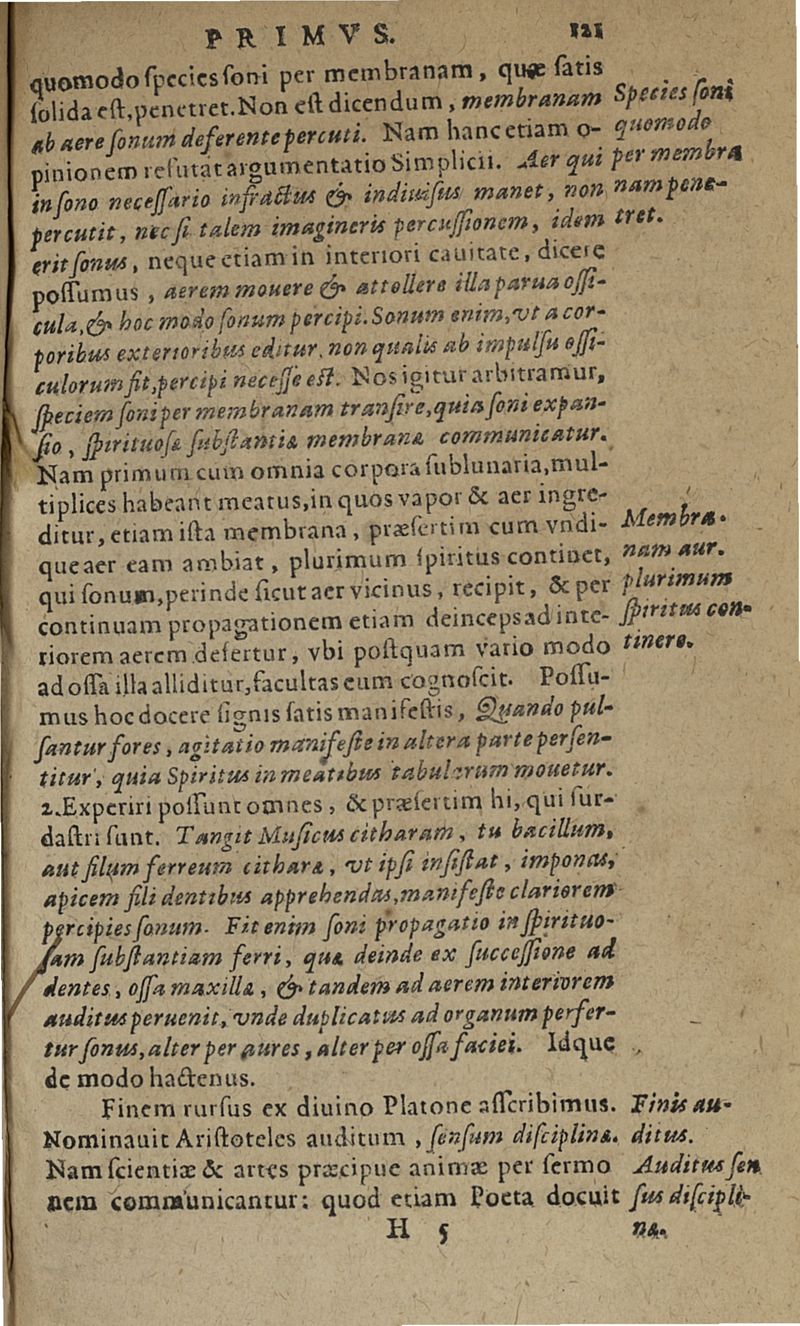 PRIMVS. 121
quomodo species soni per membranam, quæ satis
solida est, penetret. Non est dicendum, membranam
ab aere sonum deferente percuti. Nam hanc etiam o-
pinionem refutat argumentatio Simplicii. Aer qui
in sono necessario infractus & indiuisus manet, non
percutit, nec si talem imagineris percussionem, idem
erit sonus, neque etiam in interiori cauitate, dicere
possumus, aerem mouere & attollere illa parua ossi-
cula, & hoc modo sonum percipi. Sonum enim, vt a cor-
poribus exterioribus editur, non qualis ab impulsu ossi-
culorum fit, percipi necesse est. Nos igitur arbitramur,
speciem soni per membranam transire, quia soni expan-
sio, spirituosæ substantiæ membranæ communicatur.
Nam primum cum omnia corpora sublunaria, mul-
tiplices habeant meatus, in quos vapor & aer ingre-
ditur, etiam ista membrana, præsertim cum vndi-
que aer eam ambiat, plurimum spiritus continet,
qui sonum, perinde sicut aer vicinus, recipit, & per
continuam propagationem etiam deinceps ad inte-
riorem aerem defertur, vbi postquam vario modo
ad ossa illa alliditur, facultas eum cognoscit. Possu-
mus hoc docere signis satis manifestis, Quando pul-
santur fores, agitatio manifeste in altera parte persen-
titur, quia Spiritus in meatibus tabularum mouetur.
2. Experiri possunt omnes, & præsertim hi, qui sur-
dastri sunt. Tangit Musicus citharam, tu bacillum,
aut filum ferreum citharæ, vt ipsi insistat, imponas,
apicem fili dentibus apprehendas, manifeste clariorem
percipies sonum. Fit enim soni propagatio in spirituo-
sam substantiam ferri, quæ deinde ex successione ad
dentes, ossa maxillæ, & tandem ad aerem interiorem
auditus peruenit, vnde duplicatus ad organum perfer-
tur sonus, alter per aures, alter per ossa faciei. Idque
de modo hactenus.
Finem rursus ex diuino Platone asscribimus.
Nominauit Aristoteles auditum, sensum disciplinæ.
Nam scientiæ & artes præcipue animæ per sermo
nem communicantur: quod etiam Poeta docuit
H 5
Species soni
quomodo
per membra
nam pene-
tret.
Membra-
nam aur.
plurimum
spiritus con-
tinere.
Finis au-
ditus.
Auditus sen
sus discipli-
næ.